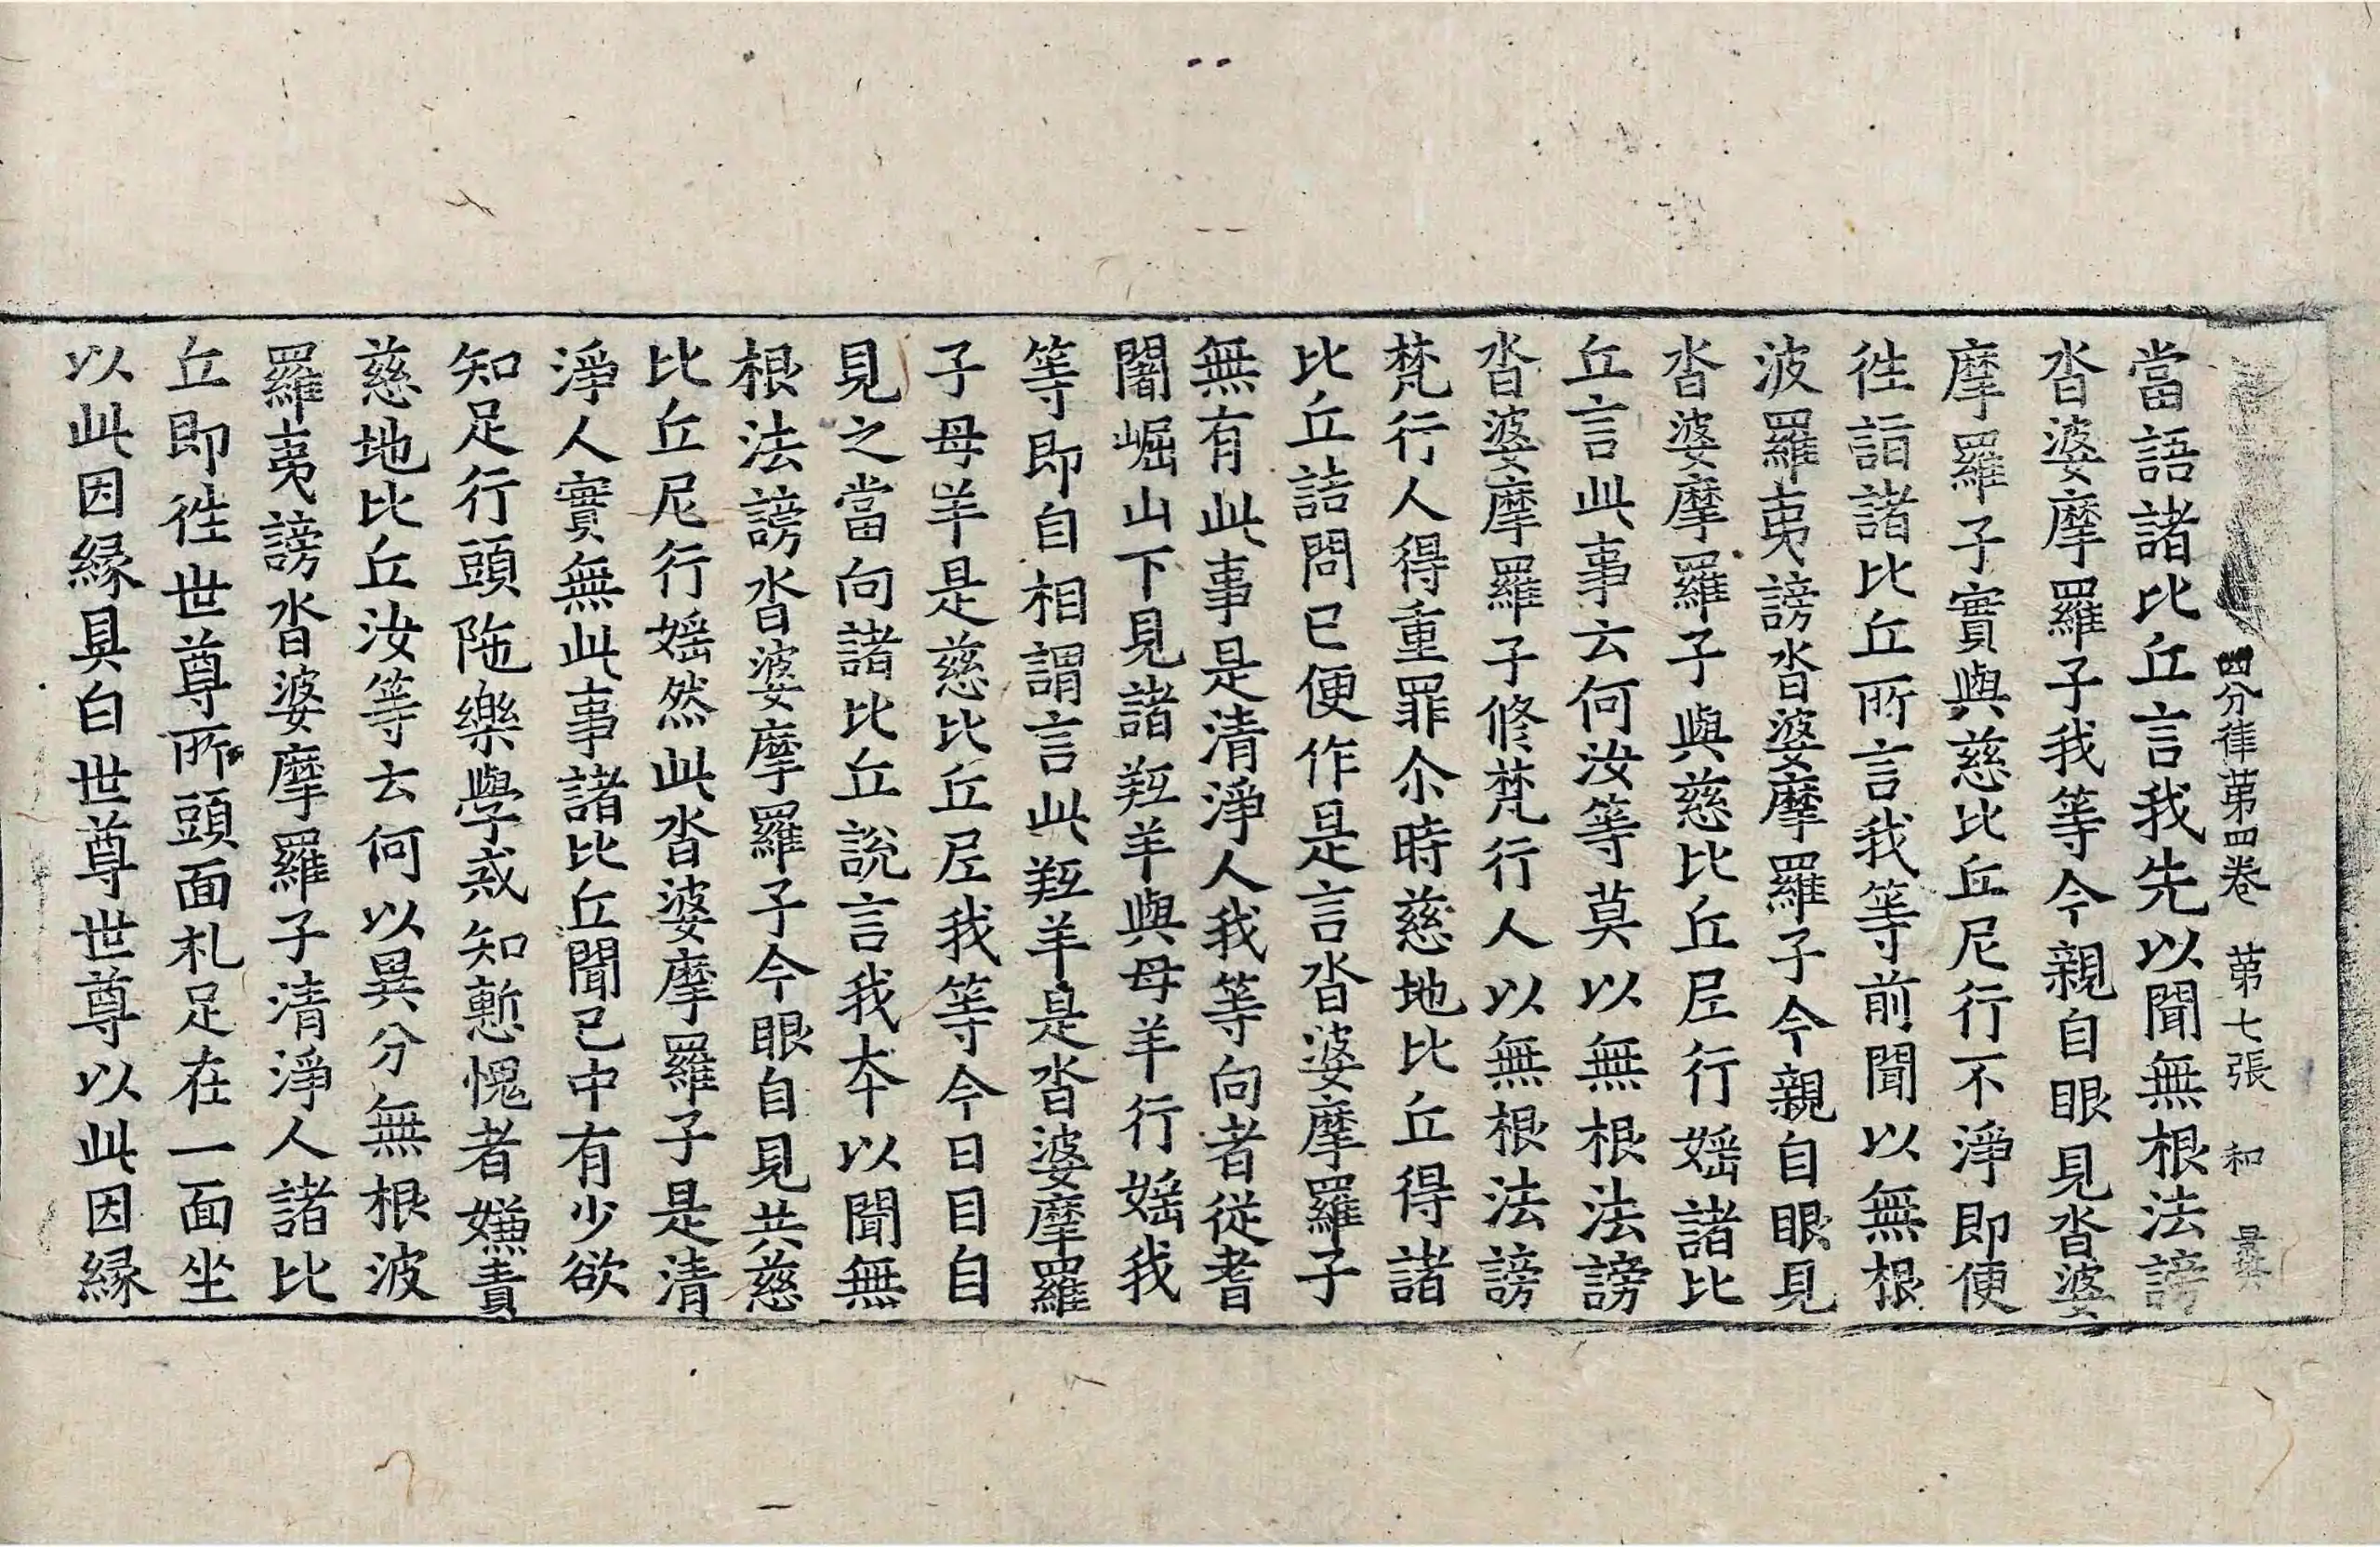 四分律苐四卷 苐七張 和
當語諸比丘言我先以聞無根法謗
沓婆摩羅子我等今親自眼見沓婆
摩羅子實與慈比丘尼行不淨即便
徃詣諸比丘所言我等前聞以無根
波羅夷謗沓婆摩羅子今親自眼見
沓婆摩羅子與慈比丘尼行婬諸比
丘言此事云何汝等莫以無根法謗
沓婆摩羅子修梵行人以無根法謗
梵行人得重罪尒時慈地比丘得諸
比丘詰問已便作是言沓婆摩羅子
無有此事是清淨人我等向者從耆
闍崛山下見諸羖羊與母羊行婬我
等即自相謂言此羖羊是沓婆摩羅
子母羊是慈比丘尼我等今日目自
見之當向諸比丘說言我夲以聞無
根法謗沓婆摩羅子今眼自見共慈
比丘尼行婬然此沓婆摩羅子是清
淨人實無此事諸比丘聞已中有少欲
知足行頭陁樂學戒知慙愧者嫌責
慈地比丘汝等云何以異分無根波
羅夷謗沓婆摩羅子清淨人諸比
丘即徃世尊所頭面札足在一面坐
以此因緣具白世尊世尊以此因緣